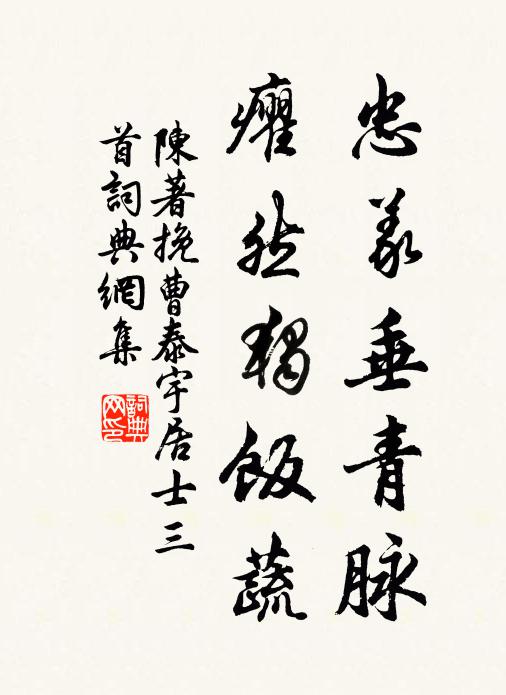 忠义垂青脉
癯然独飯蔬
陳著挽曹泰宇居士三
首詞典網集
詞典网印